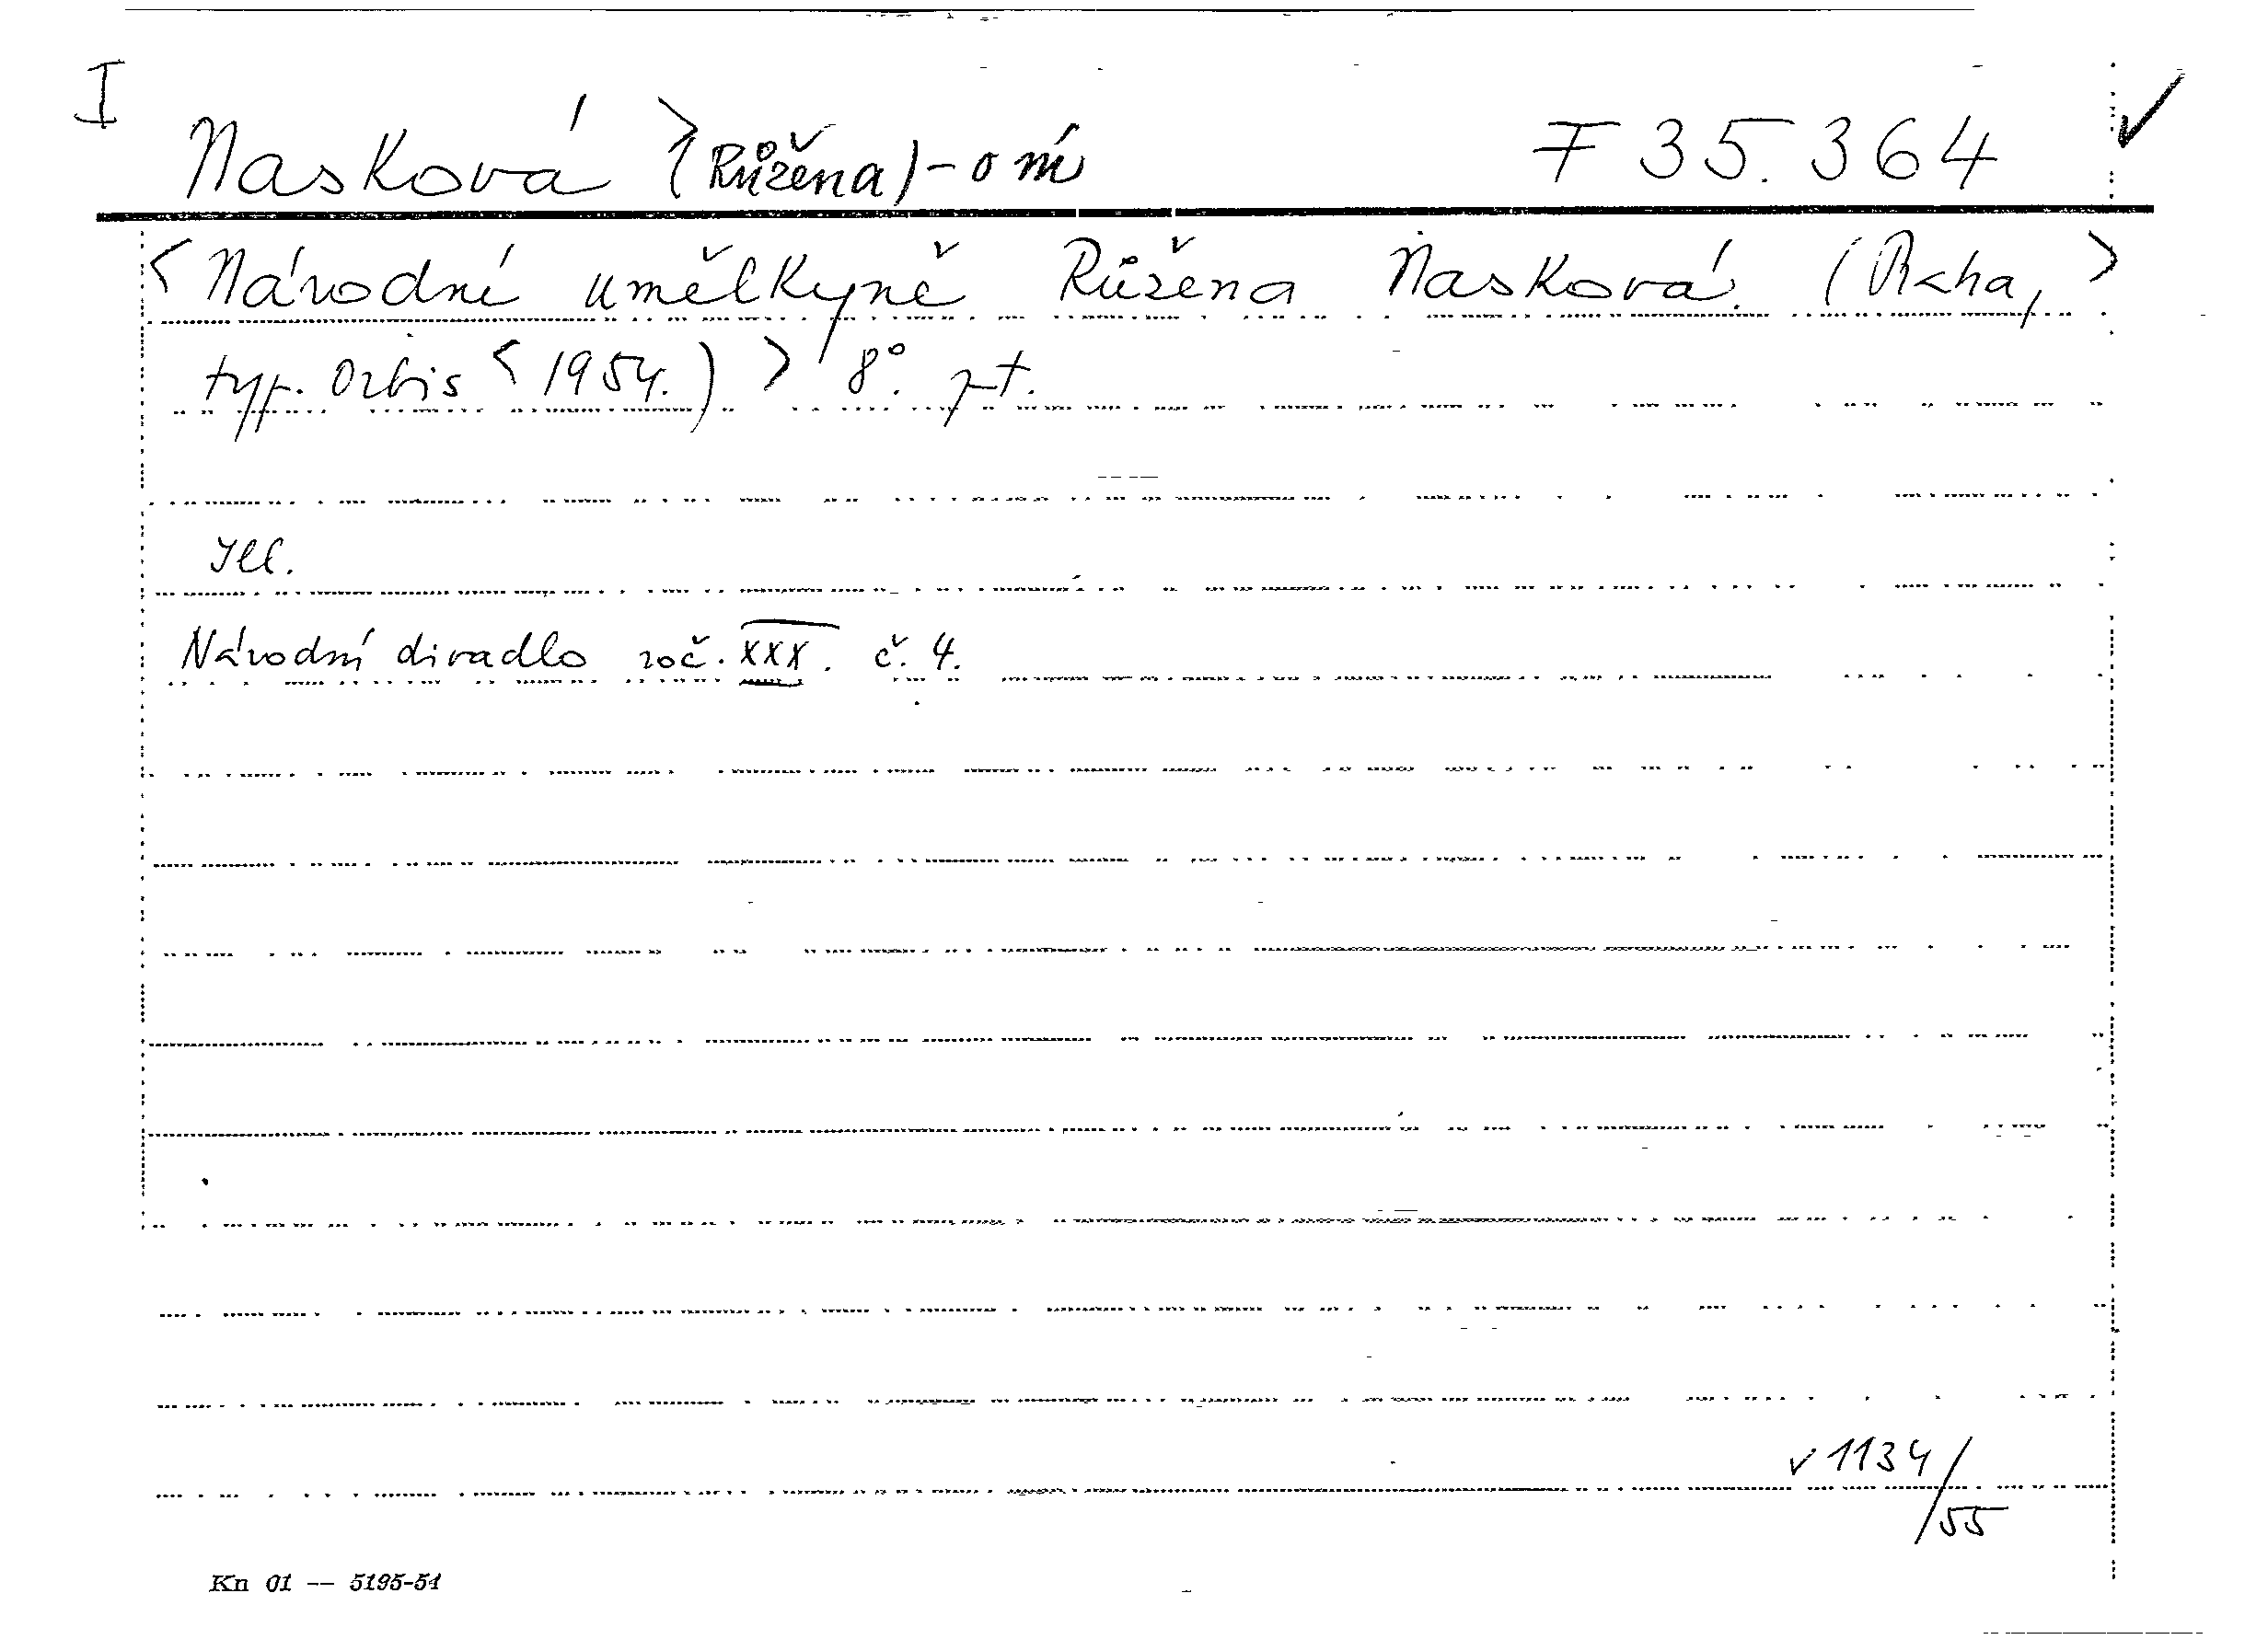 I
Nasková (Růžena) - o ní F 35.364 ✓
< Národní umělkyně Růžena Nasková. (Praha, >
typ. Orbis < 1954.) > 8°. pt.
Ill.
Národní divadlo roč. XXX. č. 4.
✓ 1134/55
Kn 01 — 5195-54